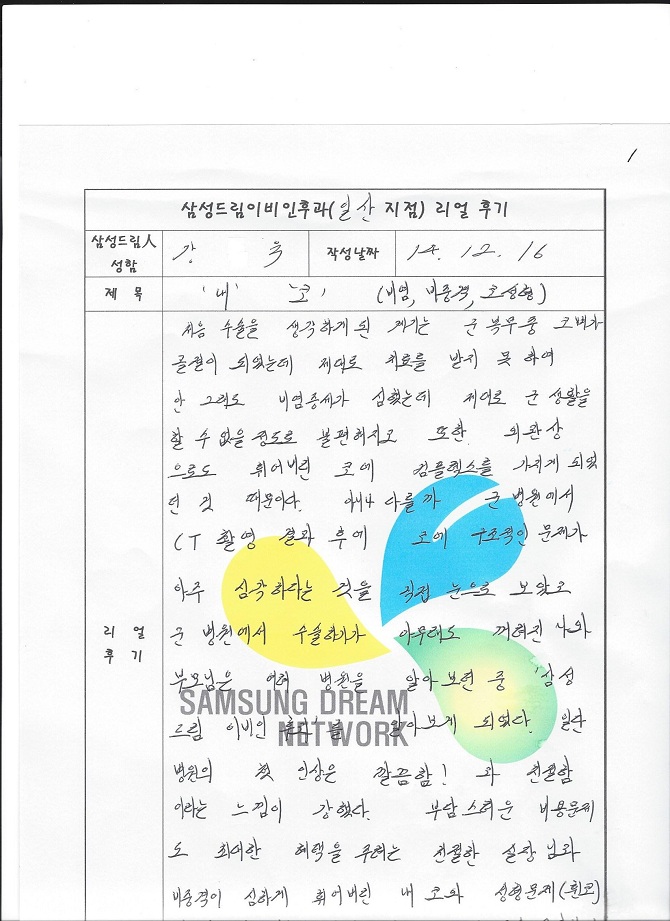 1
삼성드림이비인후과(일산 지점) 리얼 후기
삼성드림人 성함 강 욱 작성날짜 14. 12. 16
제 목 '내' '코' (비염, 비중격, 코성형)
처음 수술을 생각하게 된 계기는 군 복무중 코뼈가
골절이 되었는데 제대로 치료를 받지 못 하여
안 그래도 비염증세가 심했는데 제대로 군 생활을
할 수 없을 정도로 불편해지고 또한 외관상
으로도 휘어버린 코에 컴플렉스를 가지게 되었
던 것 때문이다. 아니나 다를까 군 병원에서
CT 촬영 결과 후에 코에 구조적인 문제가
아주 심각하다는 것을 직접 눈으로 보았고
리 얼 후 기
군 병원에서 수술하기가 아무래도 꺼려진 나와
부모님은 여러 병원을 알아보던 중 '삼성
드림 이비인 후과'를 알아보게 되었다. 일단
SAMSUNG DREAM
NETWORK
병원의 첫 인상은 깔끔함! 과 친절함
이라는 느낌이 강했다. 부담스러운 비용문제
도 최대한 혜택을 주려는 친절한 실장님과
비중격이 심하게 휘어버린 내 코와 성형문제(휜코)